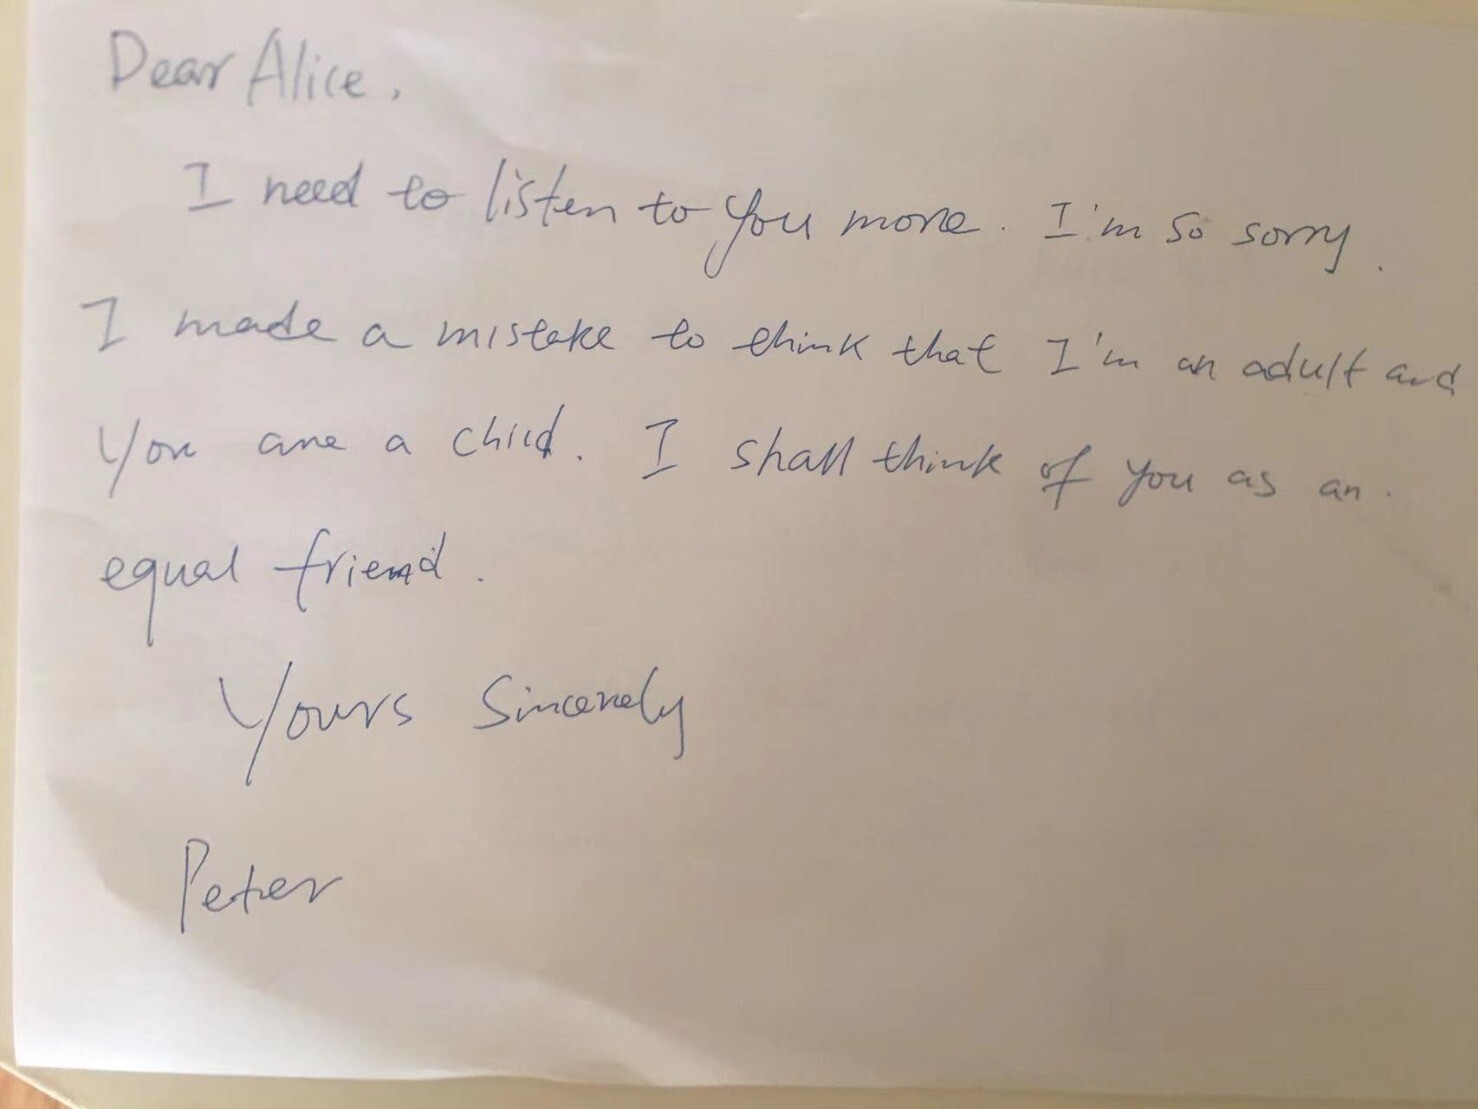 Dear Alice,
I need to listen to you more. I'm so sorry.
I made a mistake to think that I'm an adult and
you are a child. I shall think of you as an.
equal friend.
Yours Sincerely
Peter